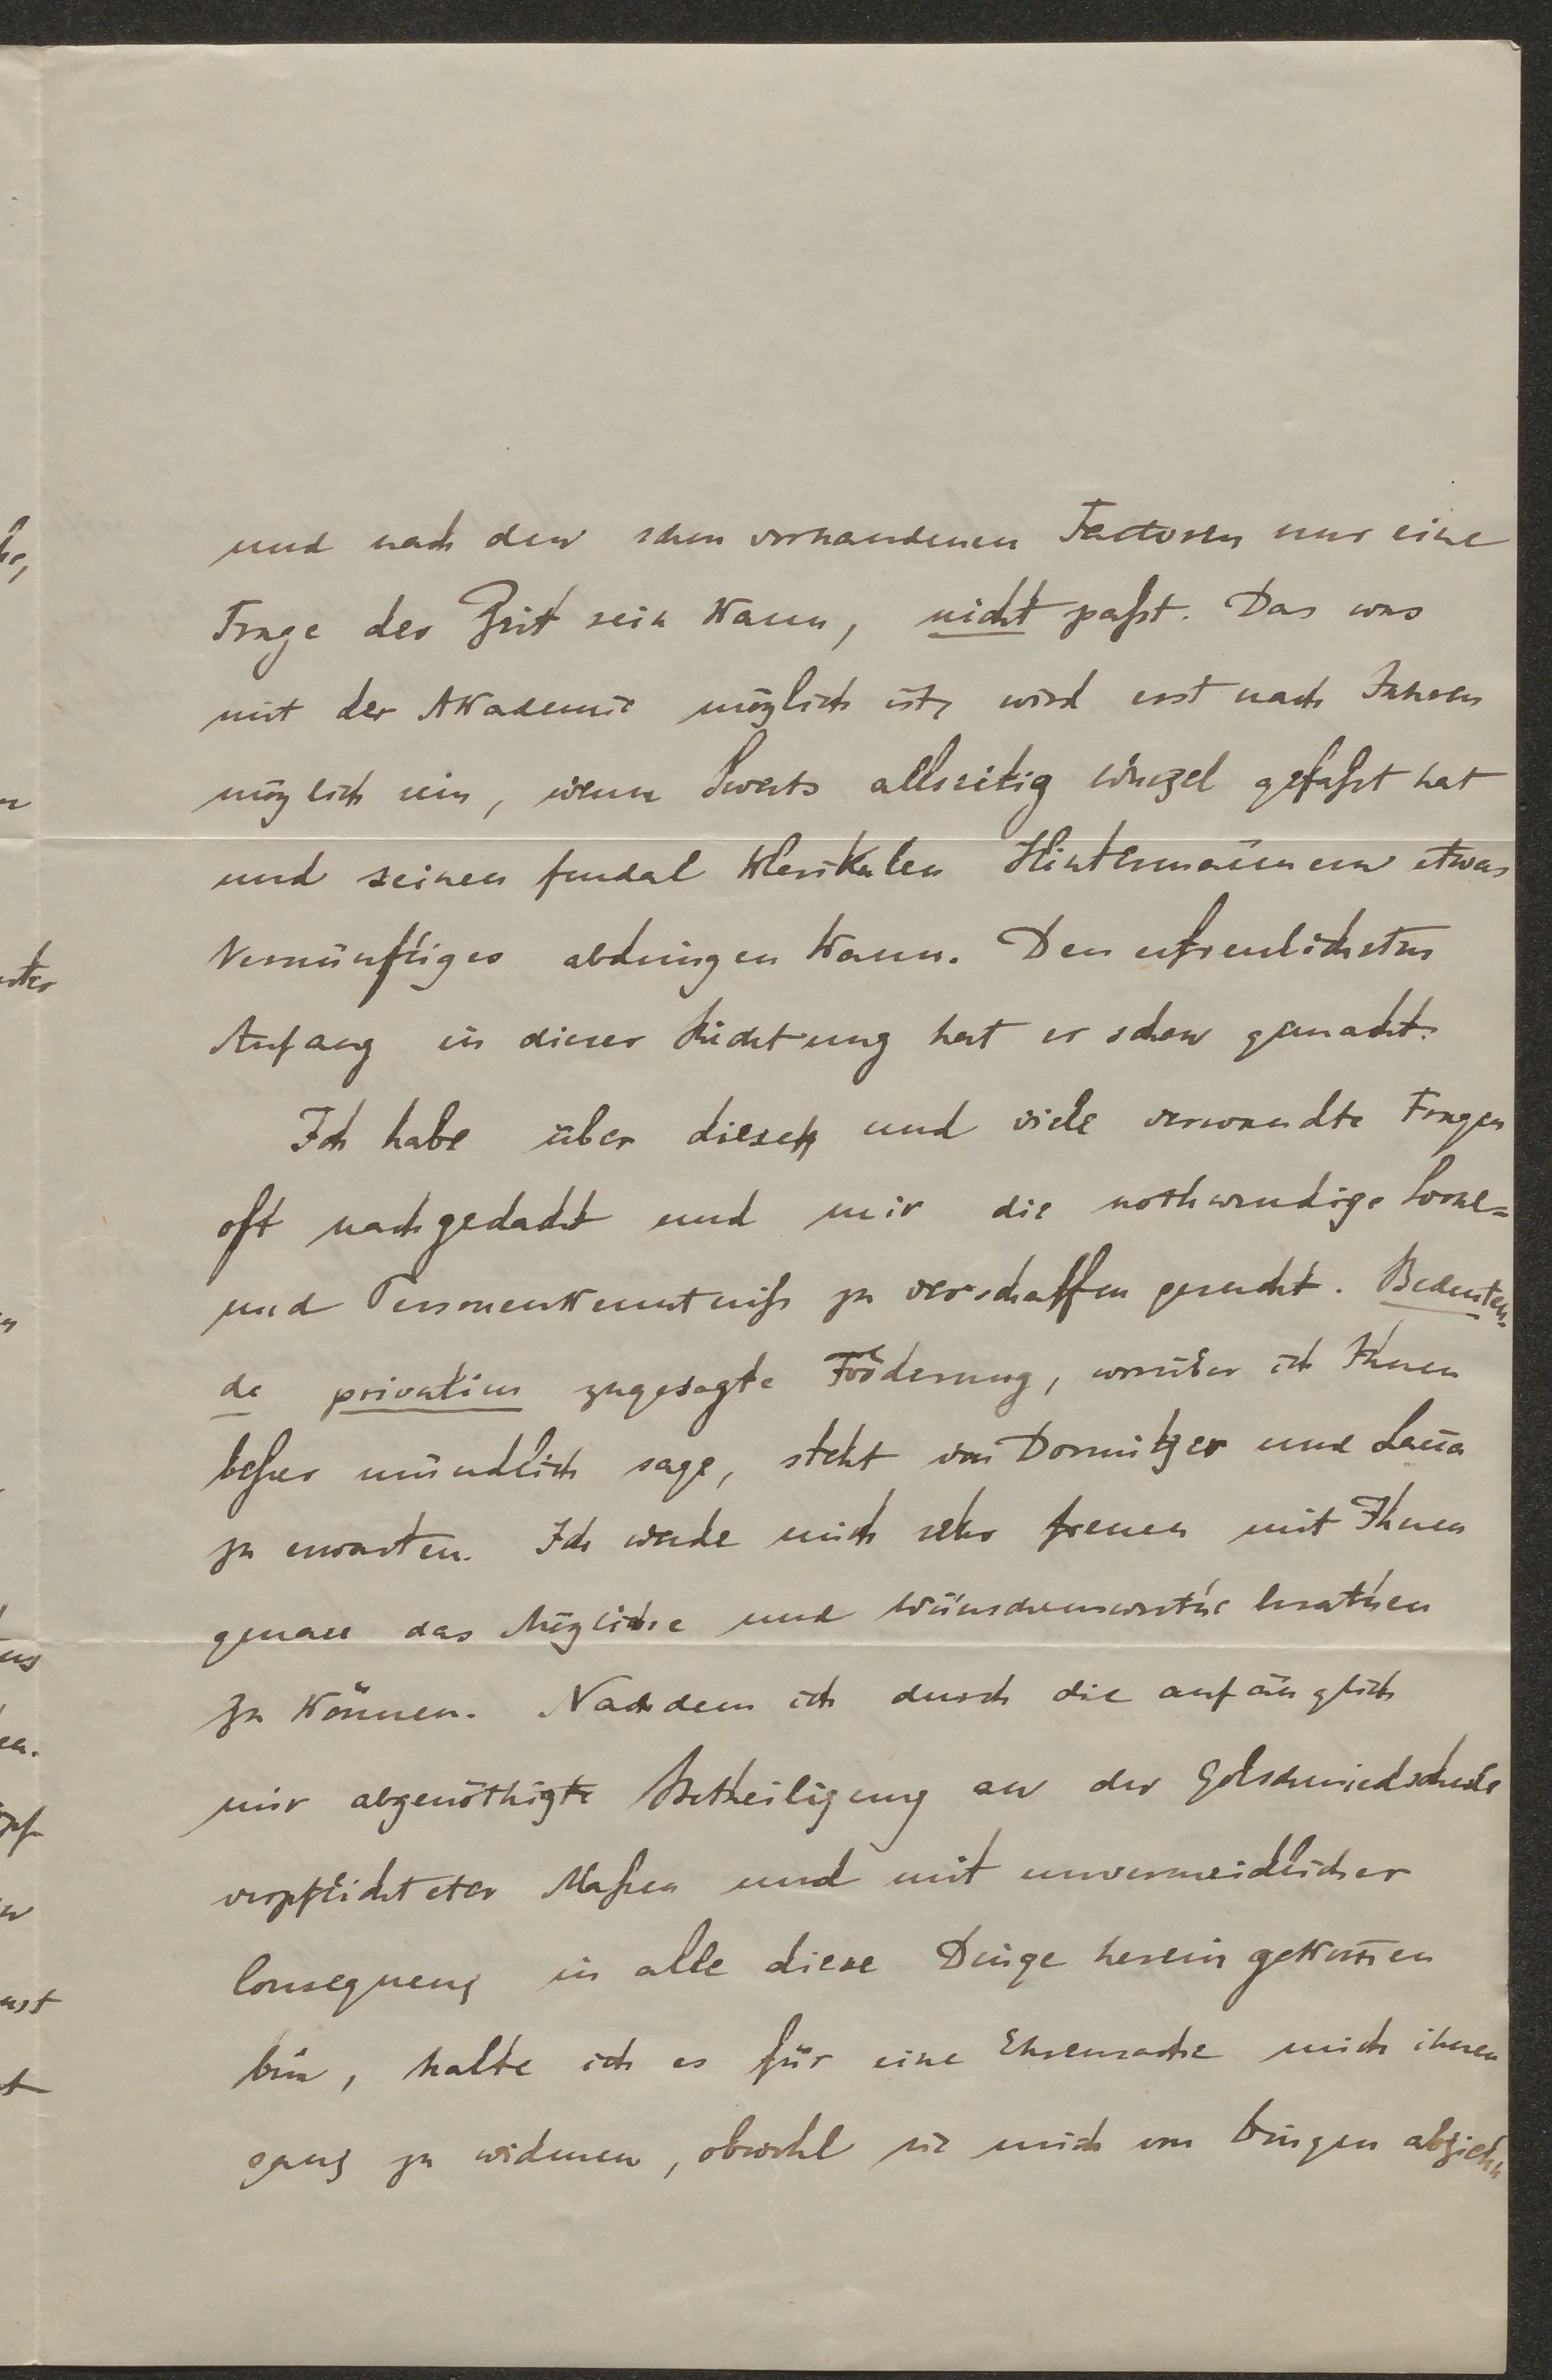 und nach den schon vorhandenen Factoren nur eine
Frage der Zeit sein kann, nicht paßt. Das was
mit der Akademie möglich ist, wird erst nach Jahren
möglich sein, wenn Swerts allseitig Wurzel gefaßt hat
und seinen feudal klerikalen Hintermännern etwas
Vernünftiges abdringen kann. Den erfreulichsten
Anfang in dieser Richtung hat er schon gemacht.
Ich habe über diese und viele verwandte Fragen
oft nachgedacht und mir die nothwendige Local-
und Personenkenntniß zu verschaffen gesucht. Bedeuten-
de privatim zugesagte Föderung, worüber ich Ihnen
beßer mündlich sage, steht von Dormitzer und Lanna
zu erwarten. Ich werde mich sehr freuen mit Ihnen
genau das Mögliche und Wünschenswerthe berathen
zu können. Nachdem ich durch die anfänglich
mir abgenöthigte Betheiligung an der Golschmiedschule
verpflichteter Maßen und mit unvermeidlicher
Consequenz in alle diese Dinge herein gekom̅en
bin, halte ich es für eine Ehrensache mich ihnen
ganz zu widmen, obwohl sie mich von Dingen abziehn